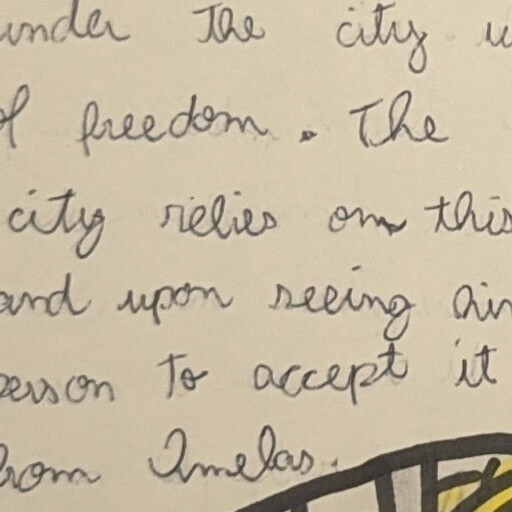 under The city
of freedom. The
city relies on this
and upon seeing
person to accept it
from Omelas.